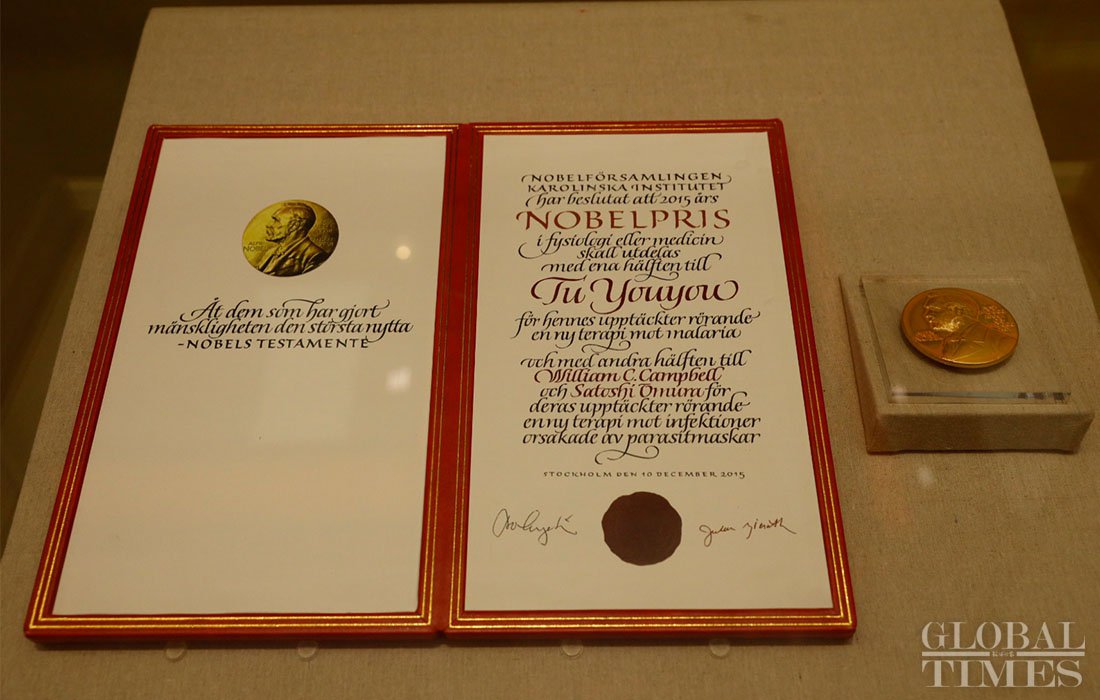 Åt dem som har gjort
mänskligheten den största nytta
-NOBELS TESTAMENTE
NOBELFÖRSAMLINGEN
KAROLINSKA INSTITUTET
har beslutat att 2015 års
NOBELPRIS
i fysiologi eller medicin
skall utdelas
med ena hälften till
Tu Youyou
för hennes upptäckter rörande
en ny terapi mot malaria
och med andra hälften till
William C. Campbell
och Satoshi Ōmura för
deras upptäckter rörande
en ny terapi mot infektioner
orsakade av parasitmaskar
STOCKHOLM DEN 10 DECEMBER 2015
GLOBAL
TIMES